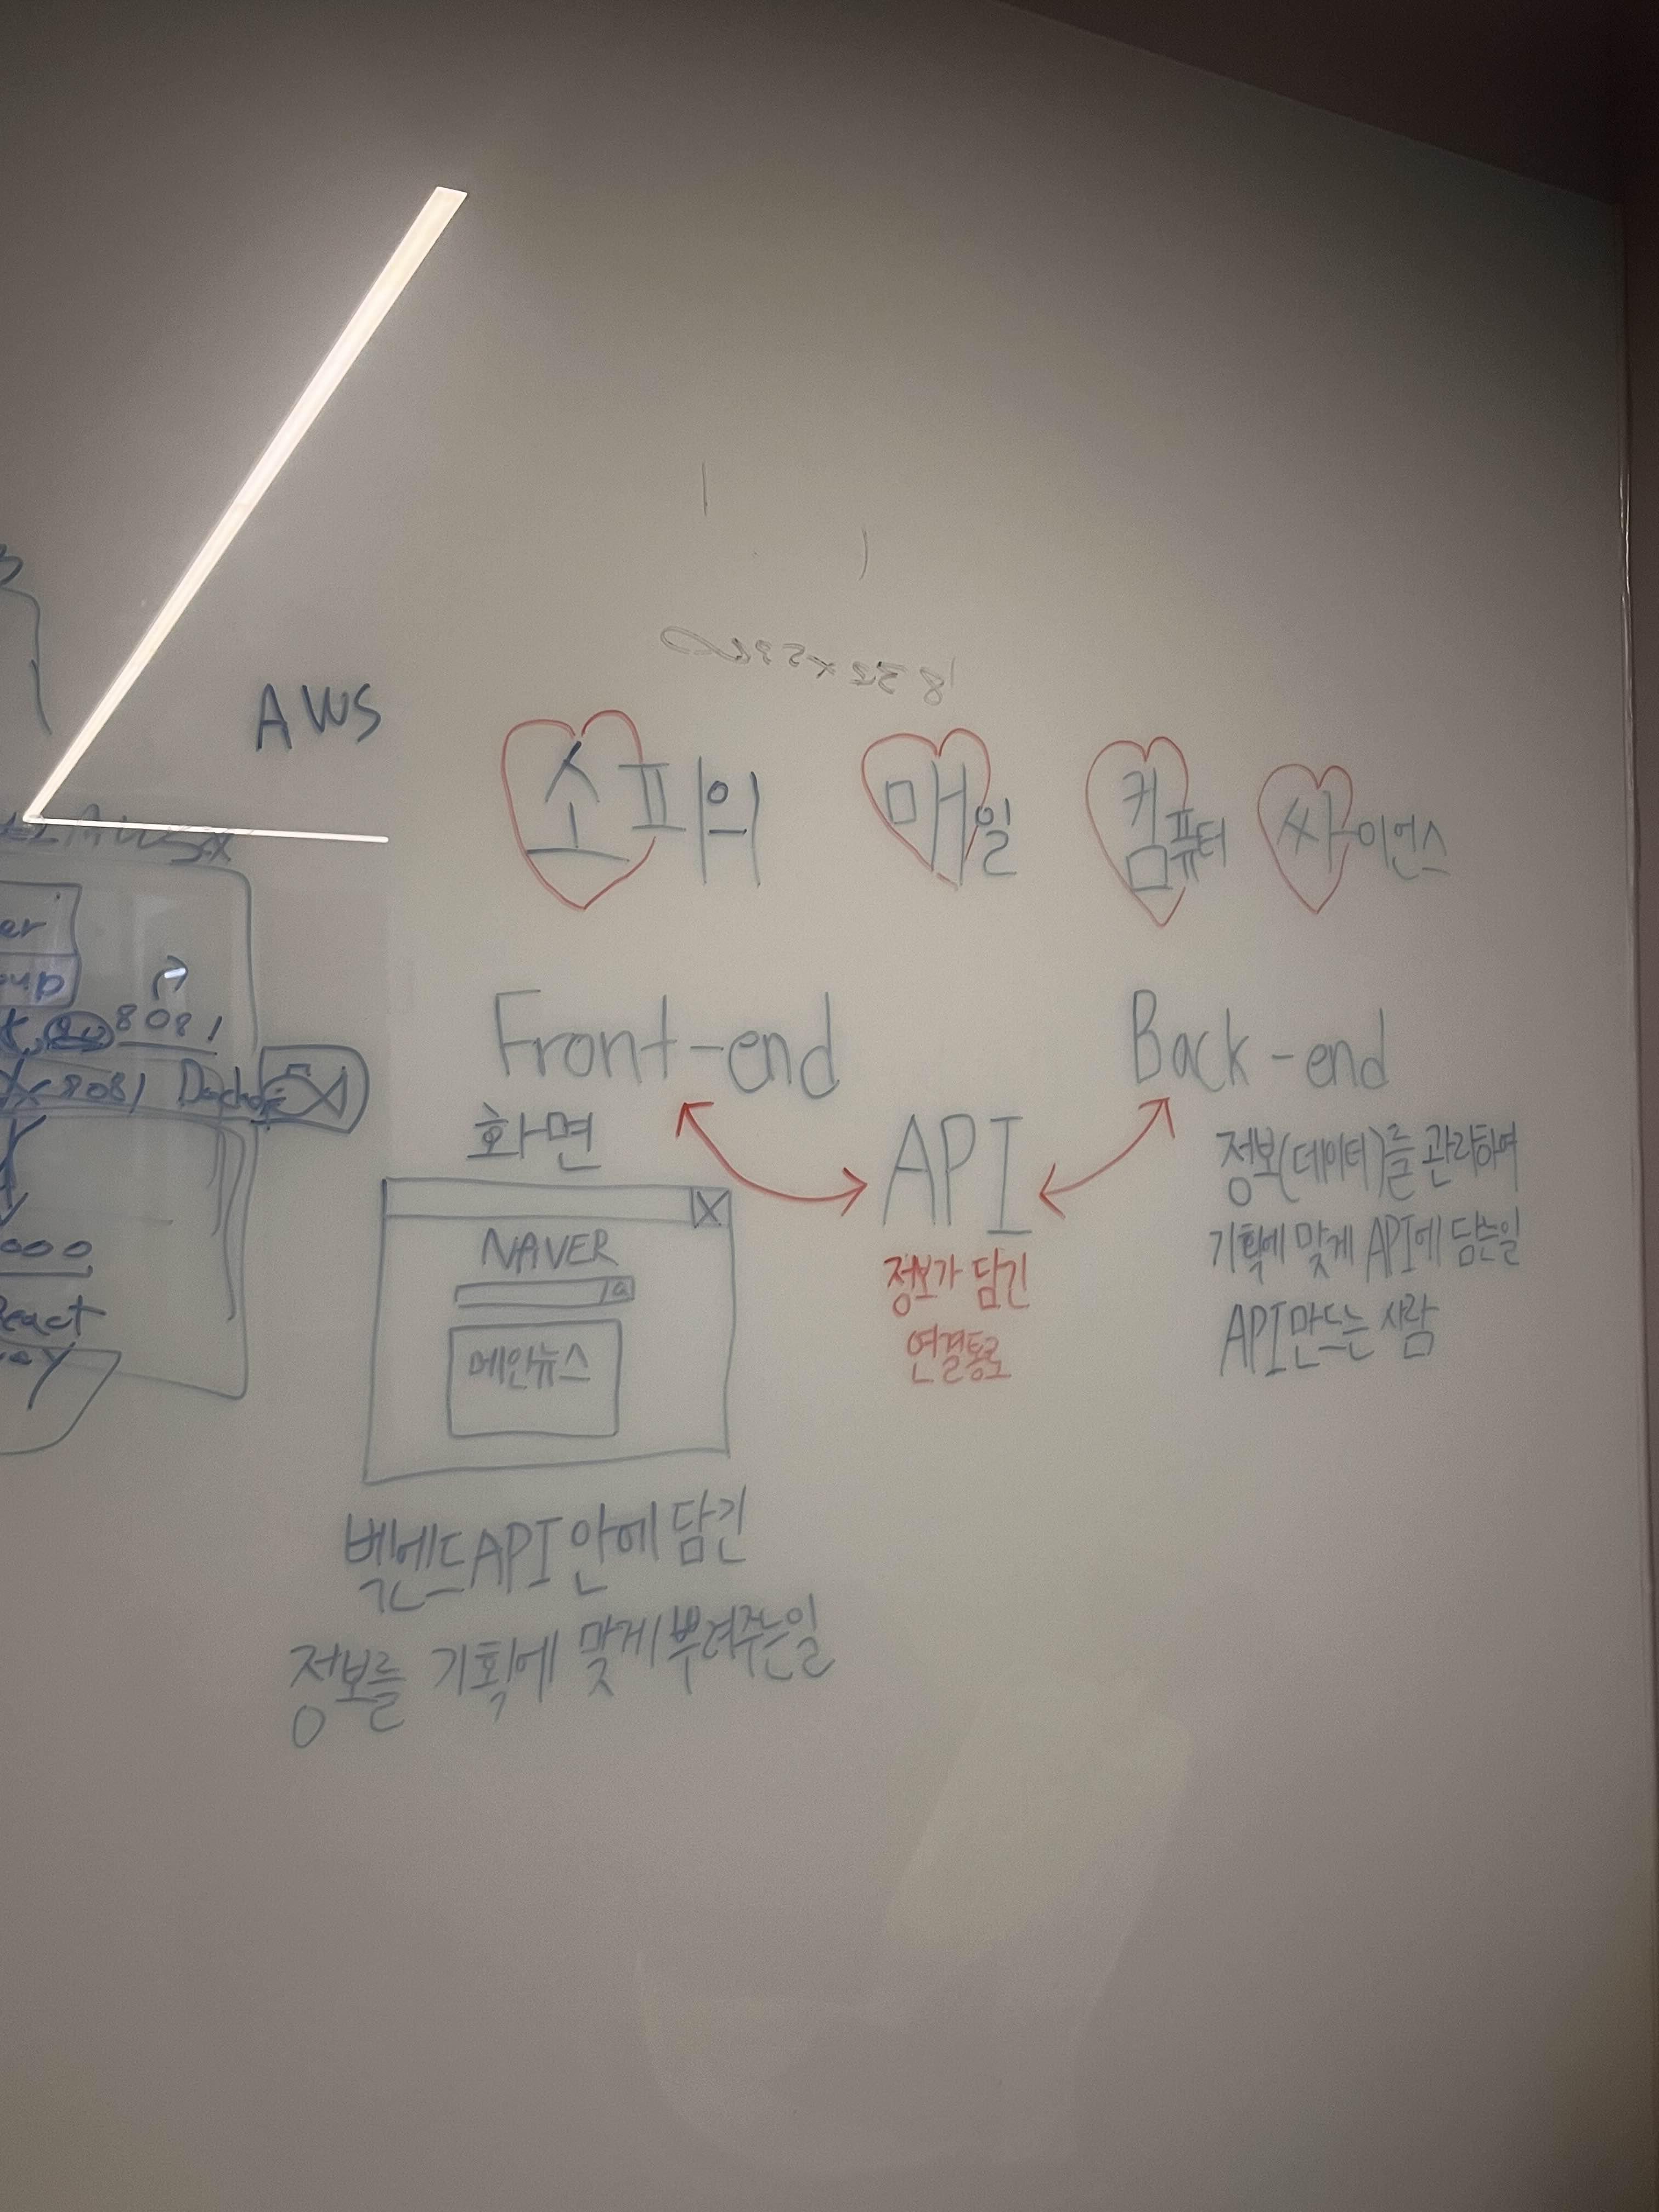 AWS
소피의 매일 컴퓨터 싸이언스
Front-end
Back-end
화면
API
정보가 담긴
연결통로
정보(데이터)를 관리하여
기획에 맞게 API에 담는일
API만드는 사람
NAVER
메인뉴스
벡엔드API 안에 담긴
정보를 기획에 맞게 뿌려주는일
8081
8081
React